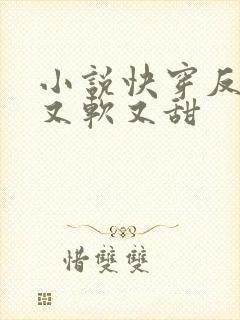 小説快穿反
又軟又甜
惜雙雙